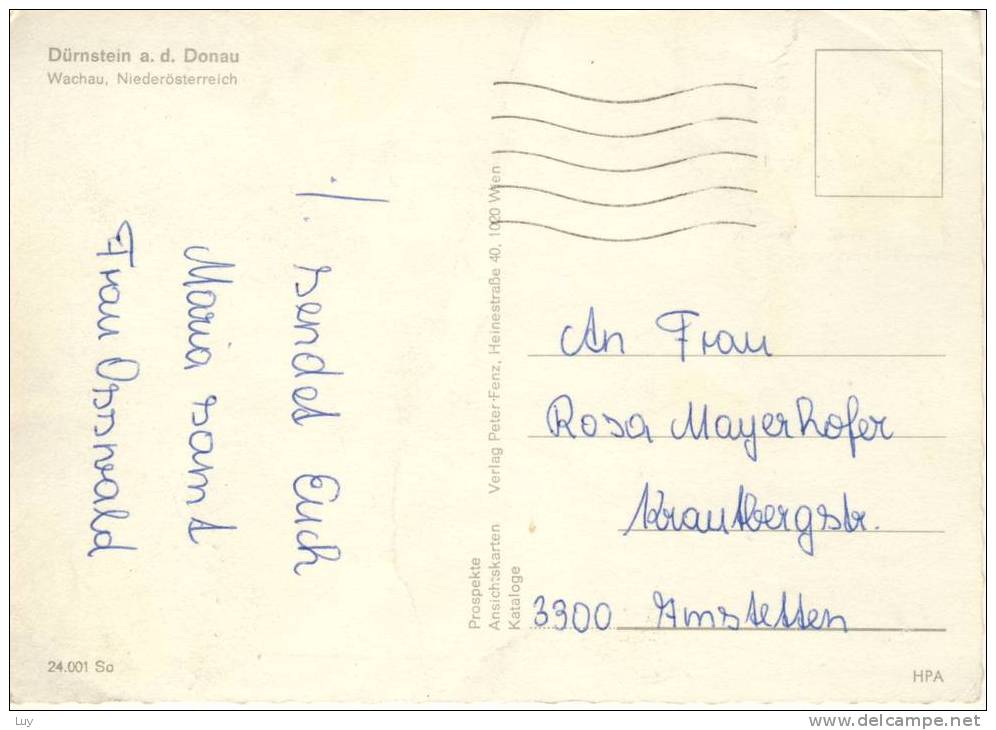 Dürnstein a. d. Donau
Wachau, Niederösterreich
./.
sendet Euch
Maria samt
Frau Osswald
Prospekte
Ansichtskarten
Kataloge
Verlag Peter Fenz, Heinestraße 40, 1020 Wien
An Frau
Rosa Mayerhofer
Krautbergstr.
3300 Amstetten
24.001 Sa
HPA
Luy
www.delcampe.net